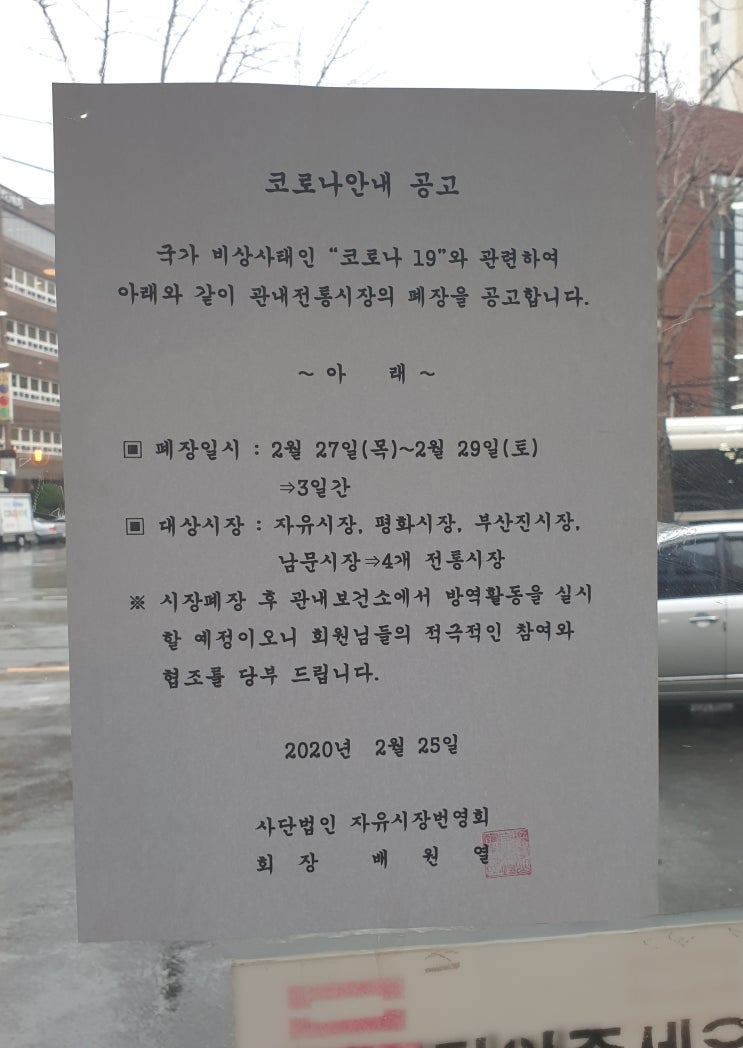 코로나안내 공고
국가 비상사태인 “코로나 19”와 관련하여
아래와 같이 관내전통시장의 폐장을 공고합니다.
~ 아 래 ~
▣ 폐장일시 : 2월 27일(목)~2월 29일(토)
⇒3일간
▣ 대상시장 : 자유시장, 평화시장, 부산진시장,
남문시장⇒4개 전통시장
※ 시장폐장 후 관내보건소에서 방역활동을 실시
할 예정이오니 회원님들의 적극적인 참여와
협조를 당부 드립니다.
2020년 2월 25일
사단법인 자유시장번영회
회 장 배 원 열